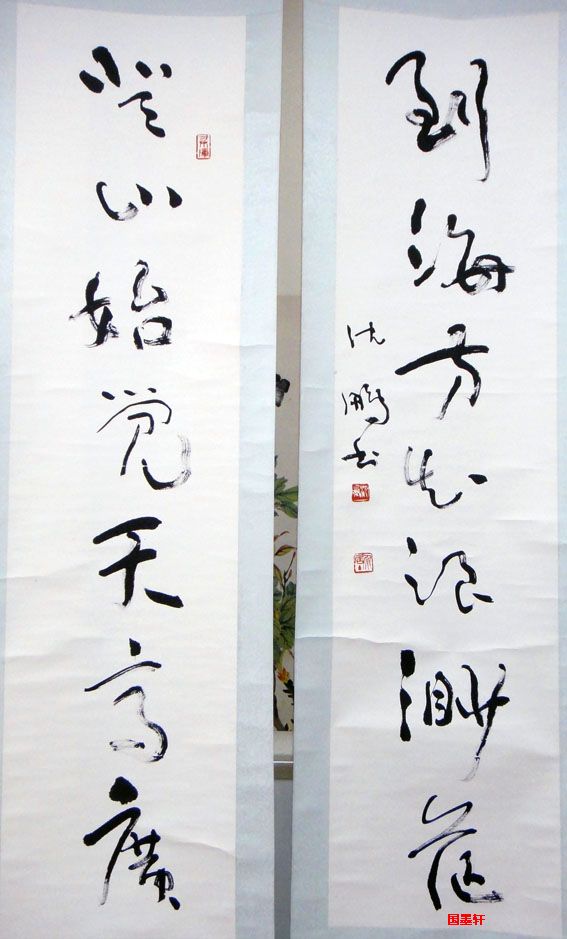 登山始觉天高廣
到海方知浪渺茫
沈鹏书
国墨轩